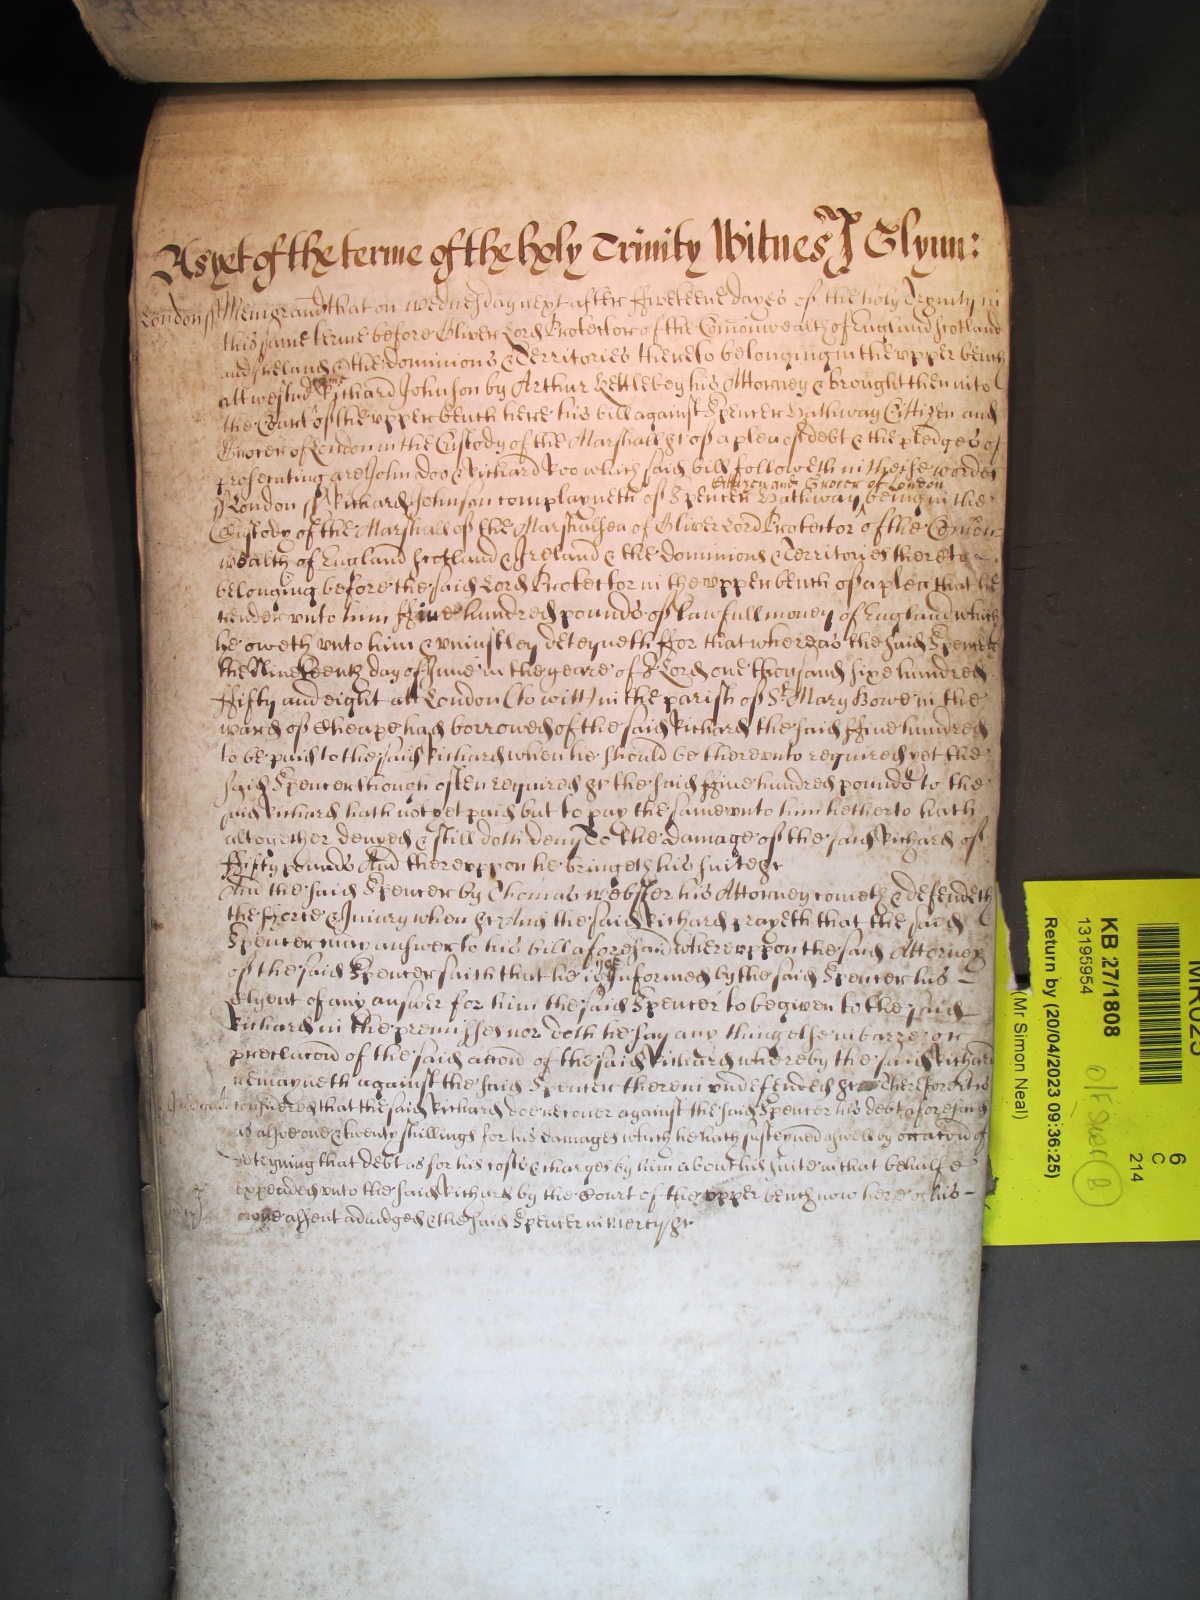 As yet of the terme of the holy Trinity Witnes J Glynn:
London ss Memorand that on Wednesday next after ffifteene dayes of the holy Trynity in
this same terme before Oliver Lord Protector of the Comonwealth of England Scotland
and Ireland & the dominions & Territories thereto belonging in the upper bench
att Westmr came Richard Johnson by Arthur Kettlebey his Attorney & brought then into
the Court of the upper bench here his bill against Spencer Hathway Cittizen and
Grocer of London in the Custody of the Marshall &c of a plea of debt & the pledges of
prosecuting are John Doo & Richard Roo which said bill followeth in theise wordes
Cittizen and Grocer of London
ss London ss Richard Johnson complayneth of Spencer Hathway being in the
Custody of the Marshall of the Marshalsea of Oliver Lord Protector of the Comon
wealth of England Scotland & Ireland & the dominions & Territories thereto
belonging before the said Lord Protector in the upper bench of a plea that he
render unto him ffive hundred pounds of lawfull money of England which
he oweth unto him & uniustley deteyneth ffor that whereas the said Spencer
the Nineteenth day of June in the yeare of or Lord one thousand sixe hundred
ffifty and eight att London (to witt) in the parish of St Mary Bowe in the
ward of Cheape had borrowed of the said Richard the said ffive hundred
to be paid to the said Richard when he should be thereunto required yet the
said Spencer though often required &c the said ffive hundred pounds to the
said Richard hath not yet paid but to pay the same unto him hetherto hath
altogether denyed & still doth deny To the damage of the said Richard of
ffifty pounds And thereuppon he bringeth his suite &c
And the said Spencer by Thomas Webster his Attorney cometh & defendeth
the fforce & Iniury when &c And the said Richard prayeth that the said
Spencer may answer to his bill aforesaid whereuppon the said Attorney
of the said Spencer saith that he is not Informed by the said Spencer his
Clyent of any answer for him the said Spencer to be given to the said
Richard in the premisses nor doth he say any thing else in barre or
preclucon of the said accon of the said Richard whereby the said Richard
remayneth against the said Spencer therein undefended &c Therefore it is
Judgmt considered that the said Richard doe recover against the said Spencer his debt aforesaid
as alsoe one & twenty shillings for his damages which he hath susteyned aswell by occation of
deteyning that debt as for his costs & charges by him about his suite in that behalfe
expended unto the said Richard by the Court of the upper bench now here of his
owne assent adiudged & the said Spencer in Mercy &c
KB 27/1808
13195954
Return by (20/04/2023 09:36:25)
(Mr Simon Neal)
6
C
214